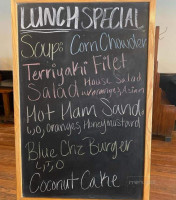 LUNCH SPECIAL
Soup: Corn Chowder
Terriyaki Filet
Salad House Salad
w/oranges, Asian
Hot Ham Sand.
w/ oranges, Honey mustard
Blue Chz Burger
Coconut Cake